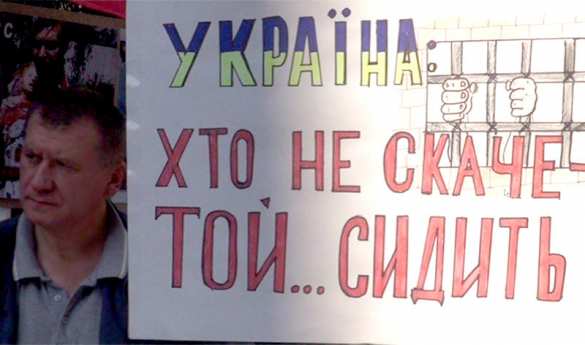 УКРАЇНА:
ХТО НЕ СКАЧЕ
ТОЙ... СИДИТЬ